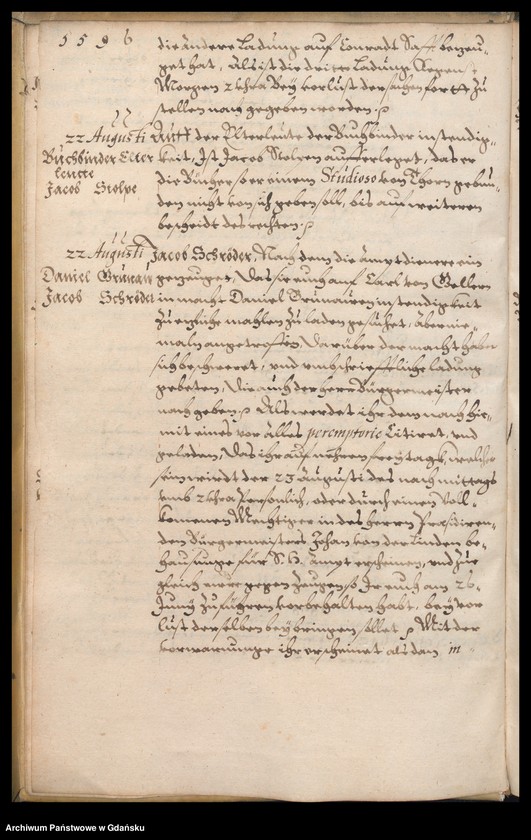 1596
die andere Ladung auf Conradt Saff bezeu-
get hat, Als ist die dritte Ladung gegen
Morgen 2 Uhra bey verlust der sachen fort zu
stellen nachgegeben worden.
22 Augusti
Buchbinder Elter
leutte
Jacob Stolpe
Auff der Elterleute der Buchbinder instendig-
keit, Ist Jacob Stolzen aufferleget, das er
die Bücher so er einem Studioso von Thorn gebun-
den nicht von sich geben soll, bis auf weiteren
bescheidt des rechten.
22 Augusti
Daniel Grunau
Jacob Schröder
Jacob Schröder, Nachdem die ampts dienere ein
gezeuget, Das sie euch auf Carl von Gellern
in mach Daniel Grunauen instendigkeit
zu etzliche mahlen zu laden gesuchet, aber nie-
maln angetroffen, Darüber der macht haber
sich beschweret, und umb schriefftliche ladung
gebeten, Die auch der herr Bürgermeister
nachgeben. Als werdet ihr dem nach hie-
mit eines vor alles peremptorie Citiret, und
geladen, Das ihr auf nehren freytagk, welcher
sein wirdt der 23 Augusti des nach mittags
umb 2 Uhra Personlich, oder durch einen Voll-
komenen Mechtiger in des herrn Præsidiren-
den Bürgermeisters Johan von der Linden be-
hausunge für S. H. Ampt erscheinen, und zue
gleich eure gegen zeugen so Ir euch am 26
Juny zu führen vorbehalten habt, bey vor-
lust derselben beybringen sollet. Mit der
vorwarnunge ihr erscheinet alsdan in
Archiwum Państwowe w Gdańsku